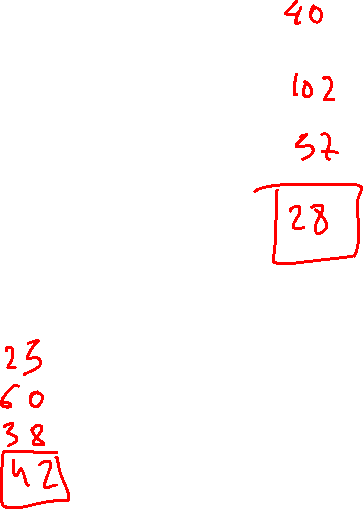 40
102
37
28
23
60
38
42